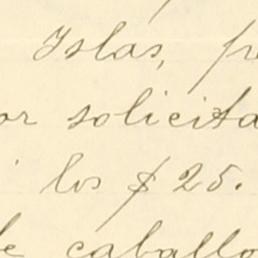 Islas, pr
or solicita
i los $ 25.
de caballo